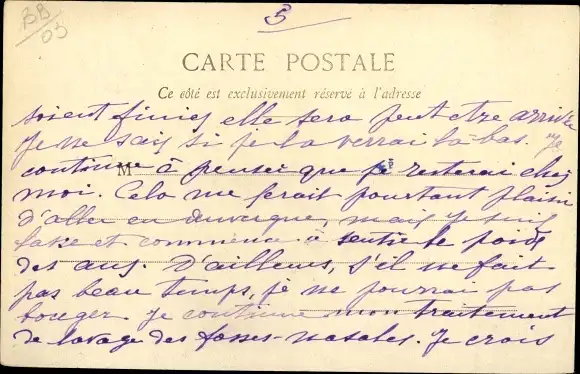 5
BB
03
CARTE POSTALE
Ce côté est exclusivement réservé à l'adresse
soient finies elle sera peut etre arrivée
Je ne sais si je la verrai la-bas. Je
continue à penser que je resterai chez
M
moi. Cela me ferait pourtant plaisir
d'aller en Auvergne, mais je suis
et commence à sentir le poids
des ans. D'ailleurs, s'il ne fait
pas beau temps, je ne pourrai pas
bouger. Je continue mon traitement
de lavage des fosses-nasales. Je crois